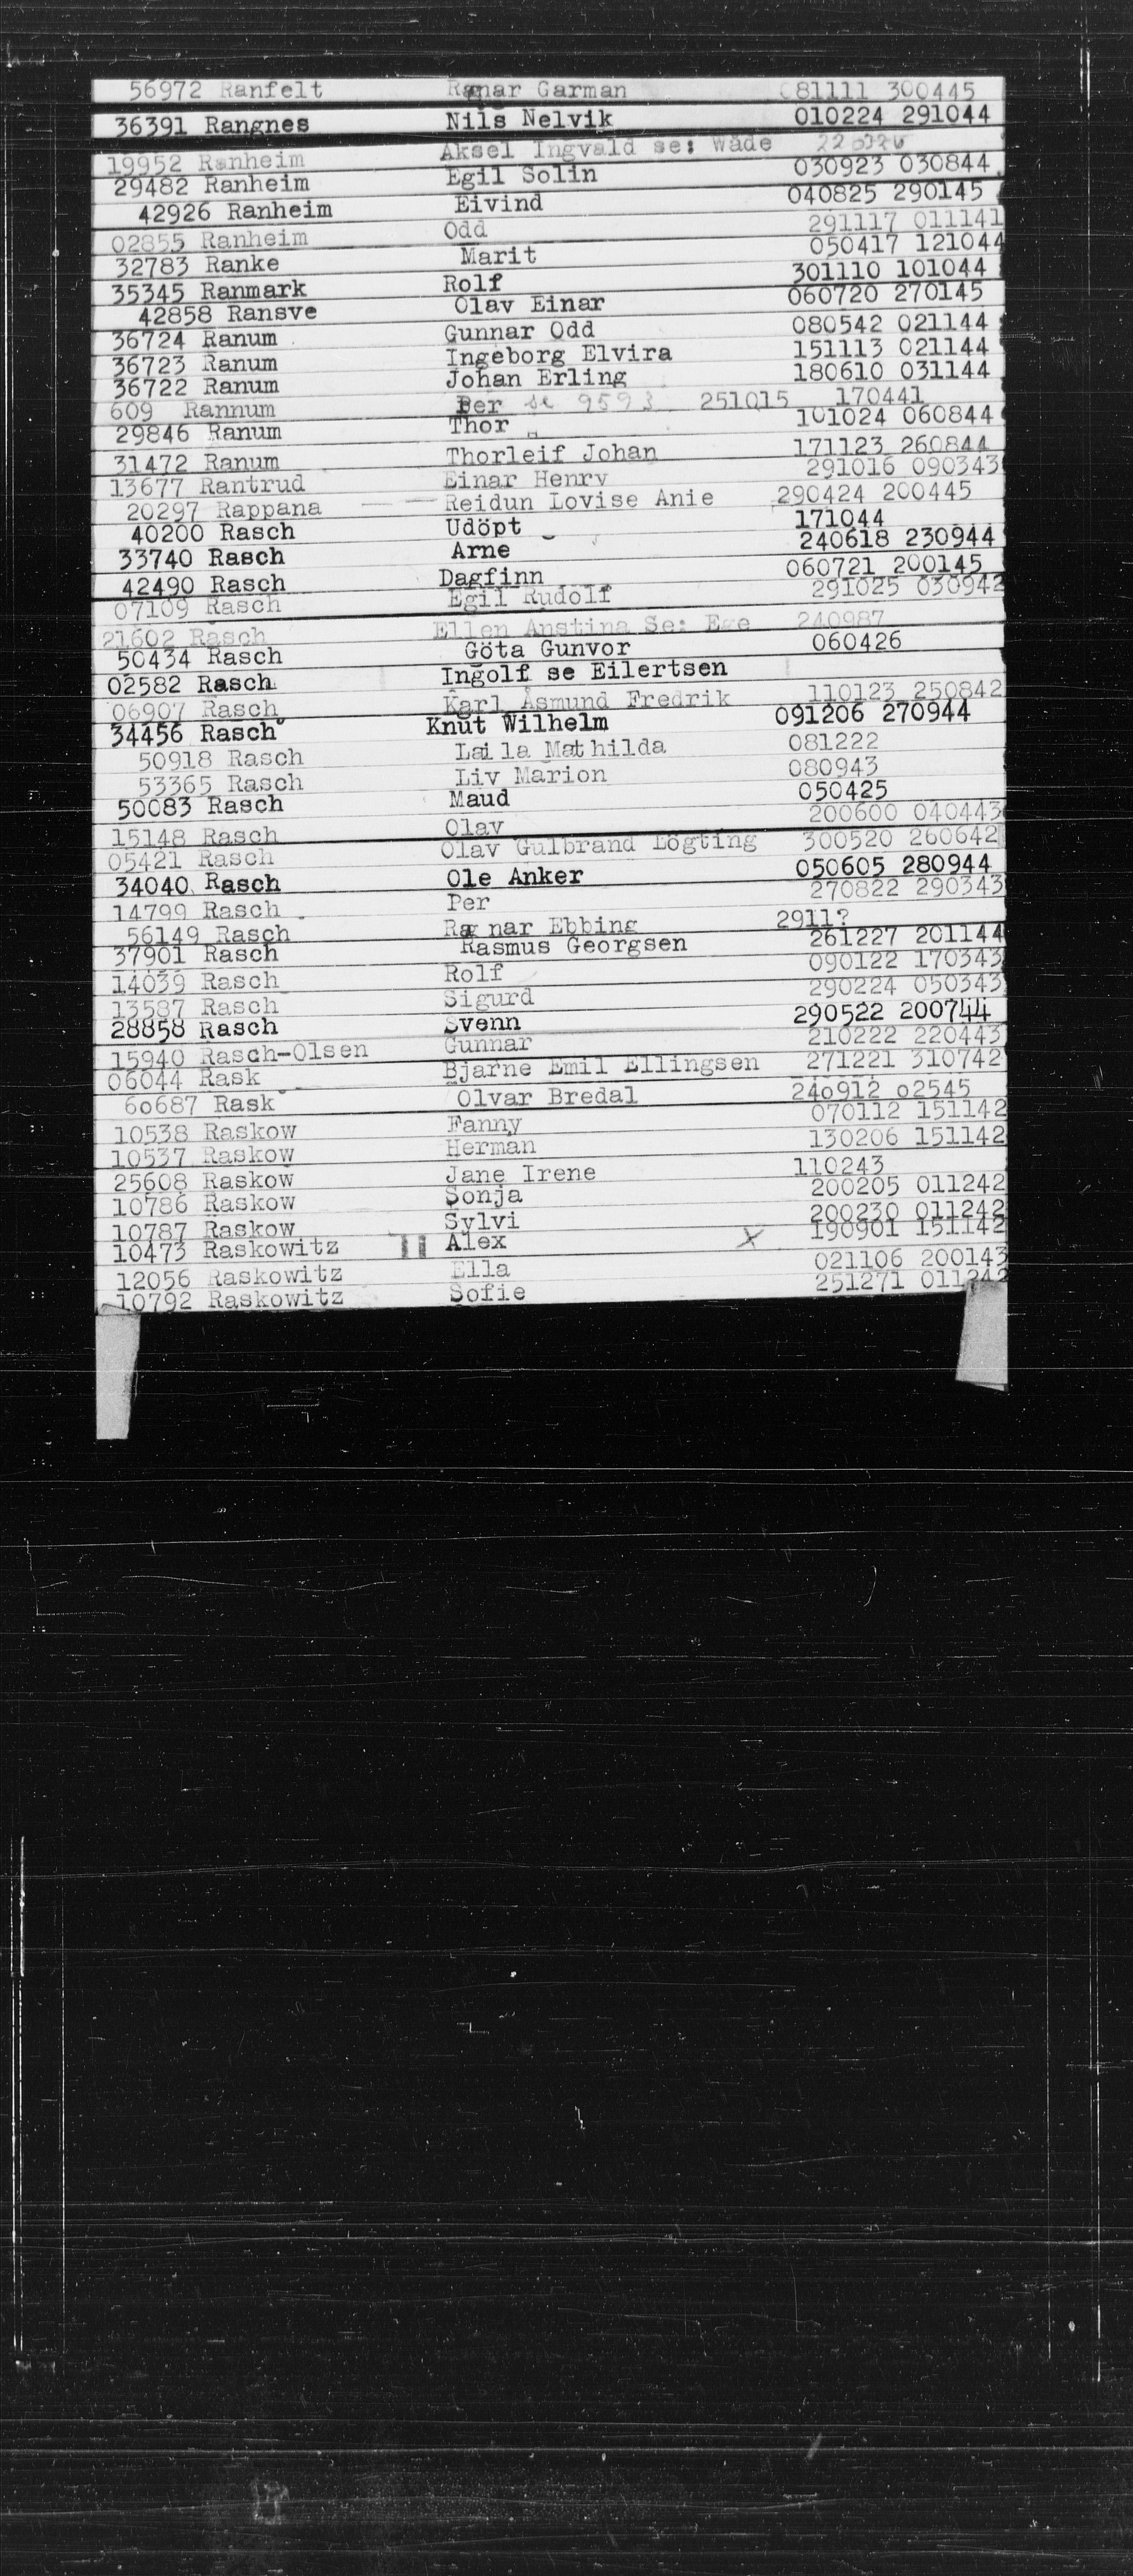 56972 Ranfelt Ragnar Garman 081111 300445
36391 Rangnes Nils Nelvik 010224 291044
19952 Ranheim Aksel Ingvald se: Wåde
29482 Ranheim Egil Solin 030923 030844
42926 Ranheim Eivind 040825 290145
02855 Ranheim Odd 291117 011141
32783 Ranke Marit 050417 121044
35345 Ranmark Rolf 301110 101044
42858 Ransve Olav Einar 060720 270145
36724 Ranum Gunnar Odd 080542 021144
36723 Ranum Ingeborg Elvira 151113 021144
36722 Ranum Johan Erling 180610 031144
609 Rannum Per se 9593 251015 170441
29846 Ranum Thor 101024 060844
31472 Ranum Thorleif Johan 171123 260844
13677 Rantrud Einar Henry 291016 090343
20297 Rappana Reidun Lovise Anie 290424 200445
40200 Rasch Udöpt 171044
33740 Rasch Arne 240618 230944
42490 Rasch Dagfinn 060721 200145
07109 Rasch Egil Rudolf 291025 030942
21602 Rasch Ellen Anstina Se: Ege 240987
50434 Rasch Göta Gunvor 060426
02582 Rasch Ingolf se Eilertsen
06907 Rasch Karl Åsmund Fredrik 110123 250842
34456 Rasch Knut Wilhelm 091206 270944
50918 Rasch Laila Mathilda 081222
53365 Rasch Liv Marion 080943
50083 Rasch Maud 050425
15148 Rasch Olav 200600 040443
05421 Rasch Olav Gulbrand Lögting 300520 260642
34040 Rasch Ole Anker 050605 280944
14799 Rasch Per 270822 290343
56149 Rasch Ragnar Ebbing 2911?
37901 Rasch Rasmus Georgsen 261227 201144
14039 Rasch Rolf 090122 170343
13587 Rasch Sigurd 290224 050343
28858 Rasch Svenn 290522 200744
15940 Rasch-Olsen Gunnar 210222 220443
06044 Rask Bjarne Emil Ellingsen 271221 310742
60687 Rask Olvar Bredal 240912 02545
10538 Raskow Fanny 070112 151142
10537 Raskow Herman 130206 151142
25608 Raskow Jane Irene 110243
10786 Raskow Sonja 200205 011242
10787 Raskow Sylvi 200230 011242
10473 Raskowitz Alex X 190901 151142
12056 Raskowitz Ella 021106 200143
10792 Raskowitz Sofie 251271 011242